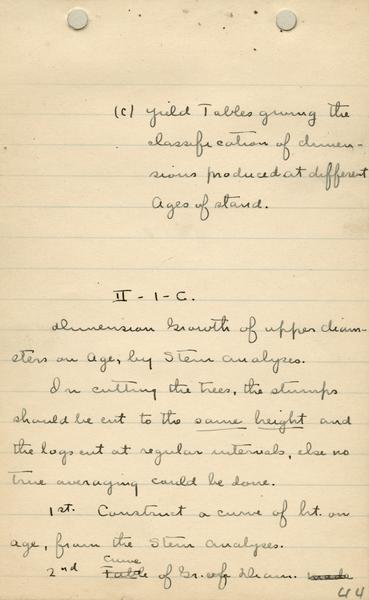 (c) Yield Tables giving the
classification of dimen-
sions produced at different
Ages of stand.
II - 1 - C.
Dimension Growth of upper diam-
eters on Age, by Stem Analyses.
In cutting the trees, the stumps
should be cut to the same height and
the logs cut at regular intervals, else no
true averaging could be done.
1st. Construct a curve of ht. on
age, from the Stem Analyses.
curve
2nd Table of Gr. of Diam. made
44